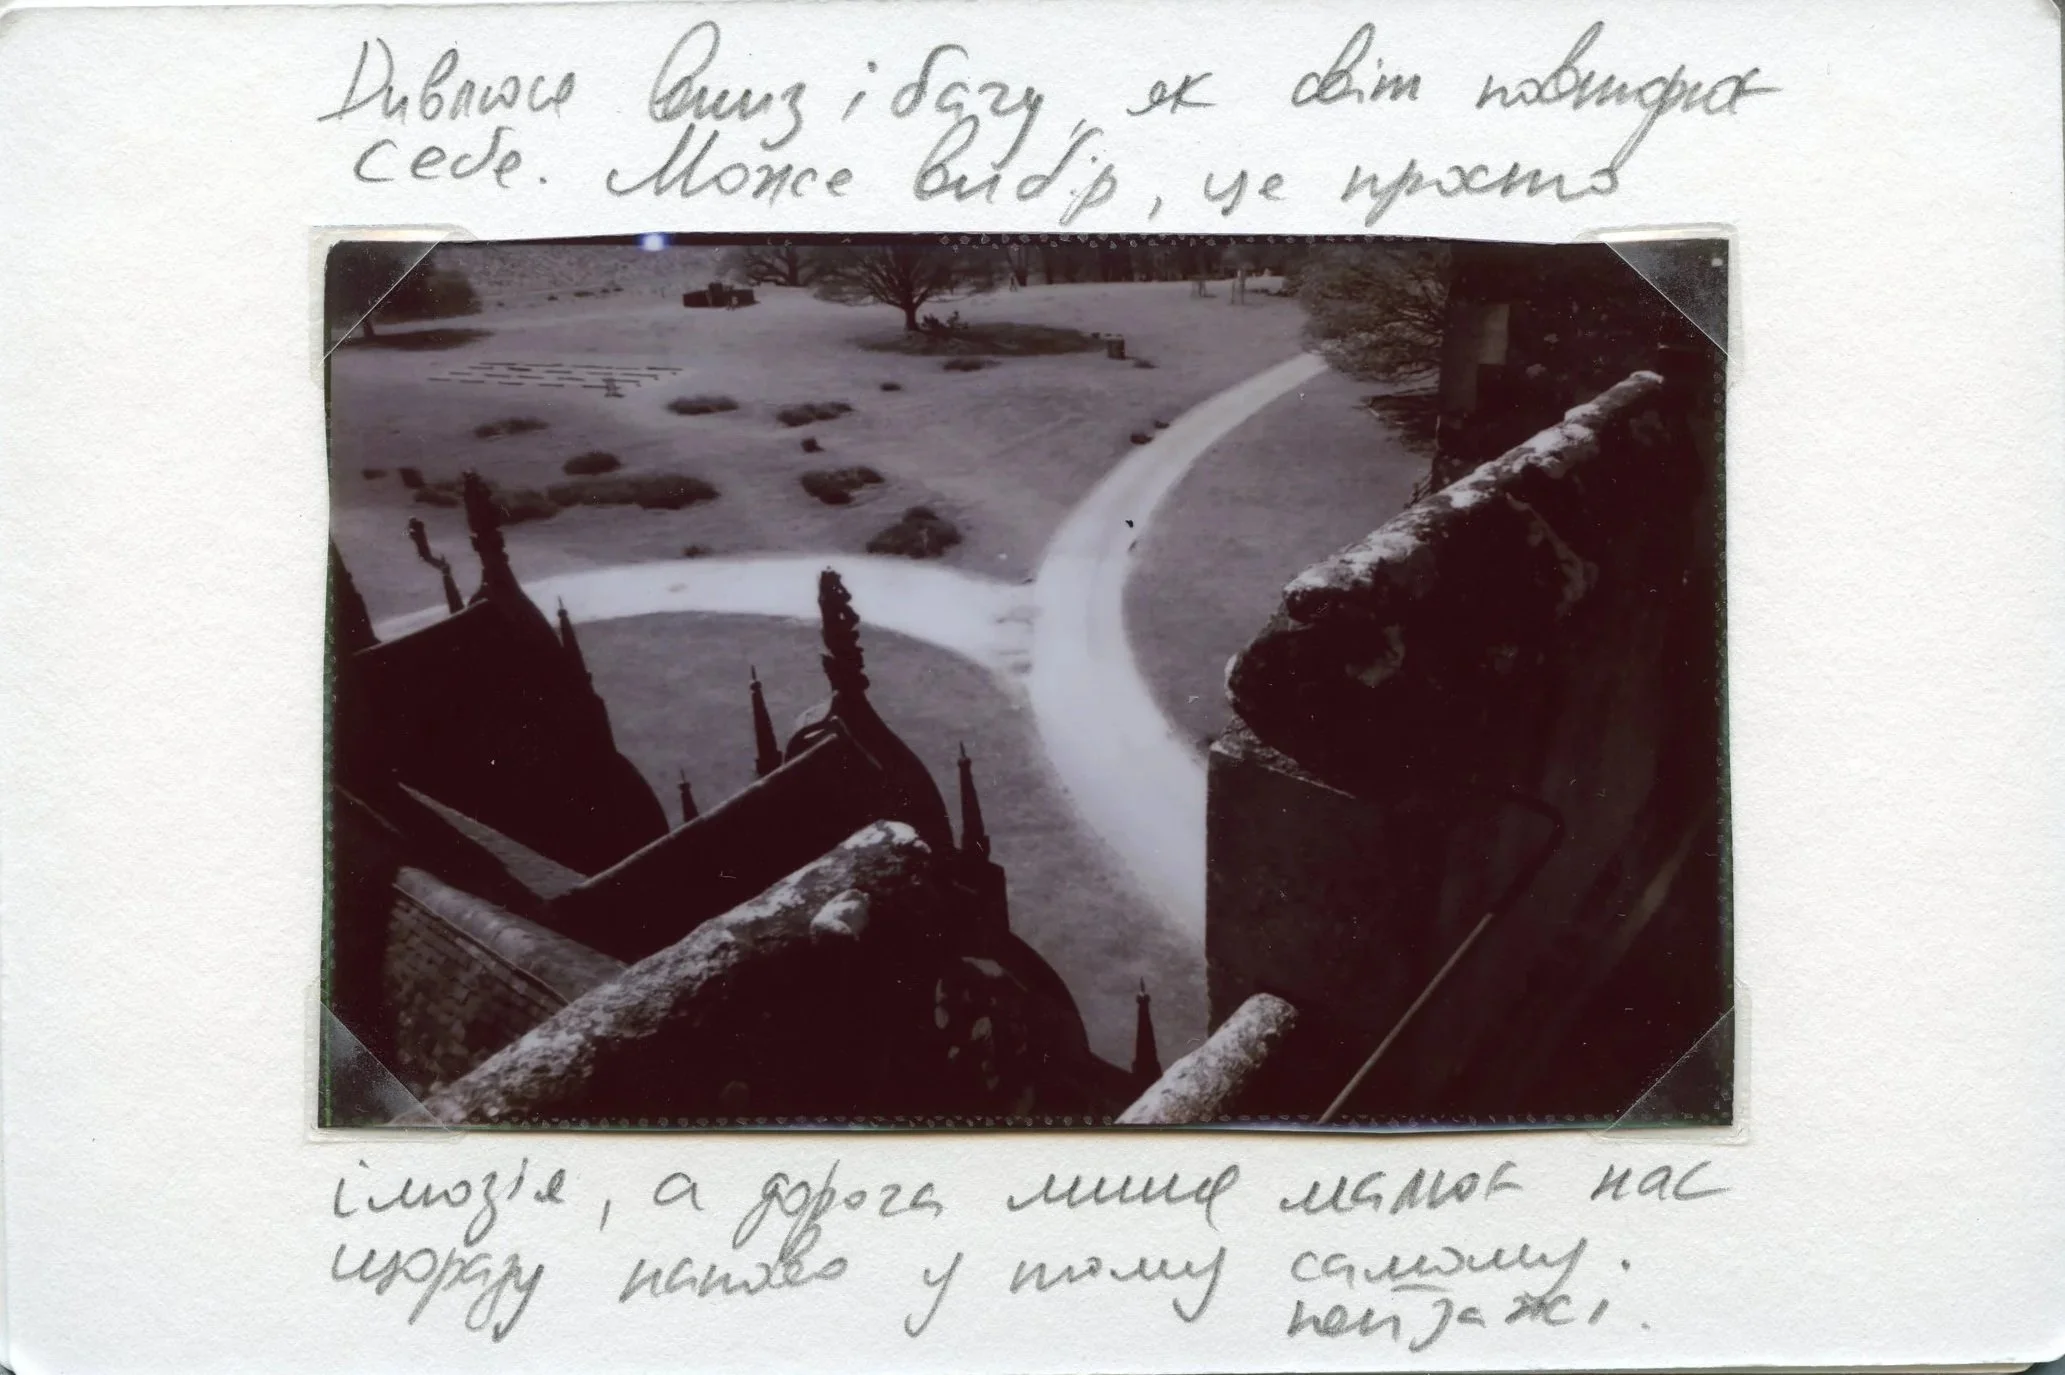 Дивлюсь вниз і бачу, як світ повторює
себе. Може вибір, це просто
ілюзія, а дорога лише малює нас
щоразу наново у тому самому.
пейзажі.